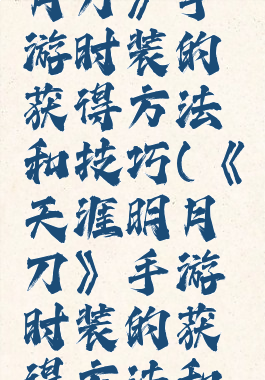 月刀》手
游时装的
获得方法
和技巧(《
天涯明月
刀》手游
时装的获
得方法和